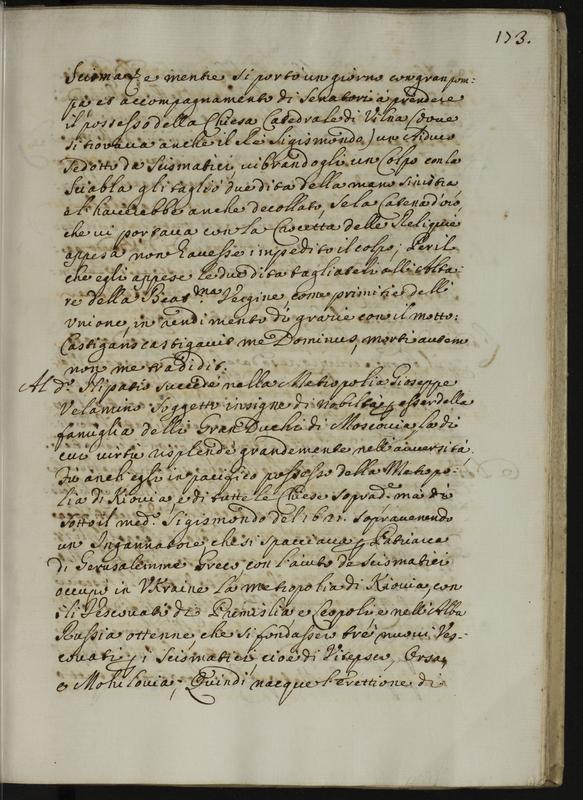 173.
Scisma, e mentre si portò un giorno con gran pom=
pa et accompagnamento di Senatori à prendere
il possesso della Chiesa Catedrale di Vilna (doue
si trouaua anche il Rè Sigismondo) un Aiduco
sedotto da Scismatici, uibrandogli un Colpo con la
Sciabla gli tagliò due dita della mano sinistra,
e l'hauerebbe anche decollato, se la Catena d'oro,
che ui portaua con la Crocetta delle Reliquie
appesa non hauesse impedito il colpo; Per il
che egli appese le due dita tagliateli all'Alta=
re della Beat.ma Vergine, come primitie dell'
Vnione, in rendimento di grazie con il motto:
Castigans castigauit me Dominus, morti autem
non me tradidit.
Al d.o Hipatio succede nella Metropolia Gioseppe
Velamino soggetto insigne di nobiltà p esser della
famiglia delli Gran Duchi di Moscouia, la di
cui uirtù risplendè grandemente nell'auuersità.
Fù anch'egli in pacifico possesso della Metropo=
lia di Kiouia, e di tutte le Chiese soprad.e mà di
sotto il med.o Sigismondo del 1621. soprauenendo
un Ingannatore, che si spacciaua p Patriarca
di Gerusalemme Greco, con l'aiuto de Scismatici
occupò in Vkraine la metropolia di Kiouia, con
li Vescouati di Premislia e Leopoli e nell'Alba
Russia ottenne, che si fondassero trè nuoui Ves=
couati p i Scismatici cioè di Vitepsco, Orsa,
e Mohilouia; Quindi nacque l'erettione di